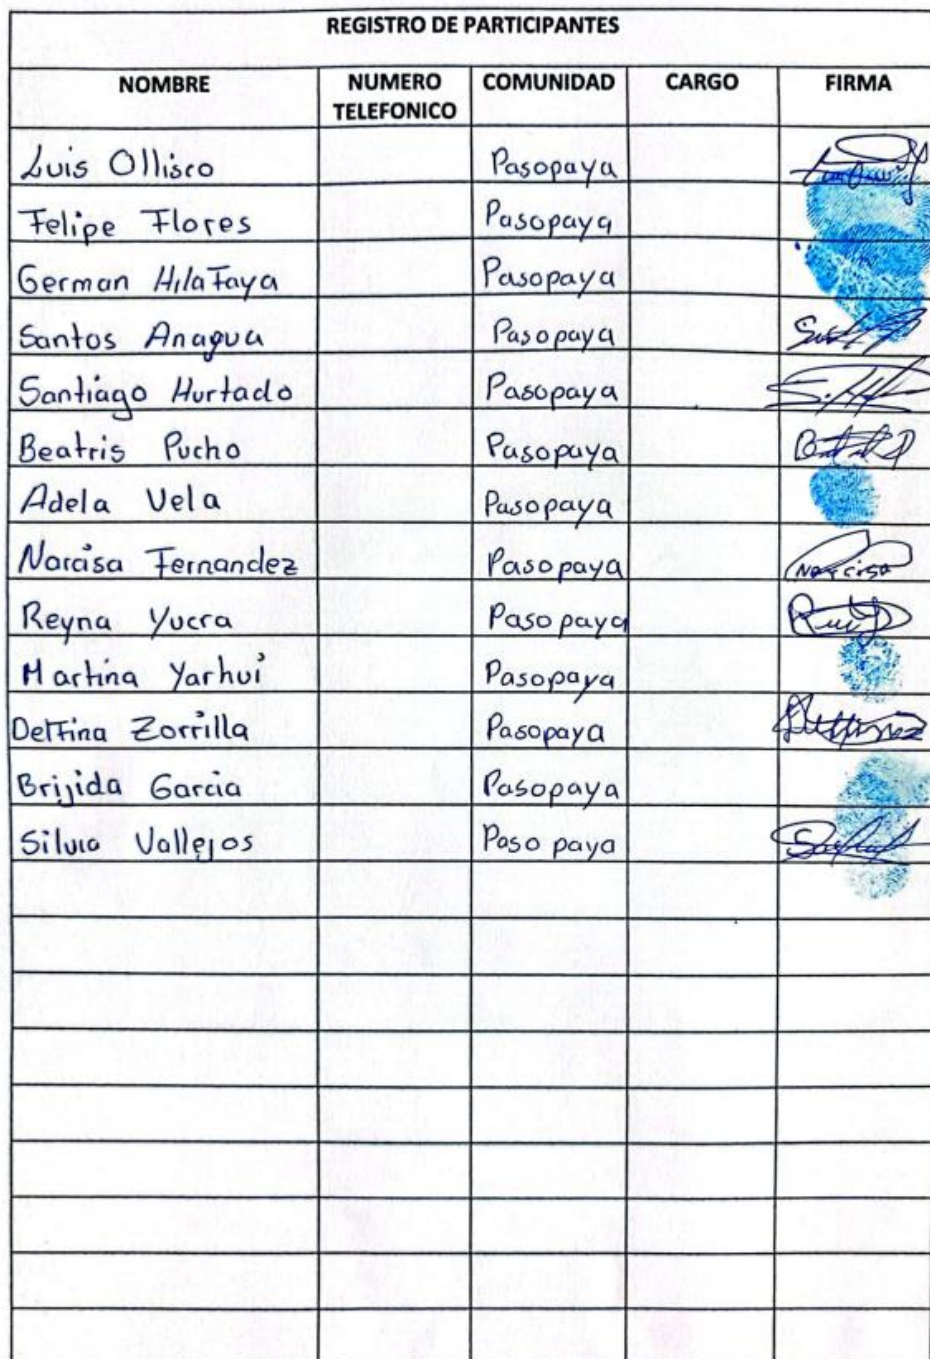 REGISTRO DE PARTICIPANTES
NOMBRE NUMERO TELEFONICO COMUNIDAD CARGO FIRMA
Luis Ollisco Pasopaya
Felipe Flores Pasopaya
German HilaTaya Pasopaya
Santos Anagua Pasopaya
Santiago Hurtado Pasopaya
Beatris Pucho Pasopaya
Adela Vela Pasopaya
Narcisa Fernandez Pasopaya Narcisa
Reyna Yucra Pasopaya
Martina Yarhui Pasopaya
Delfina Zorrilla Pasopaya
Brijida Garcia Pasopaya
Silvia Vallejos Pasopaya